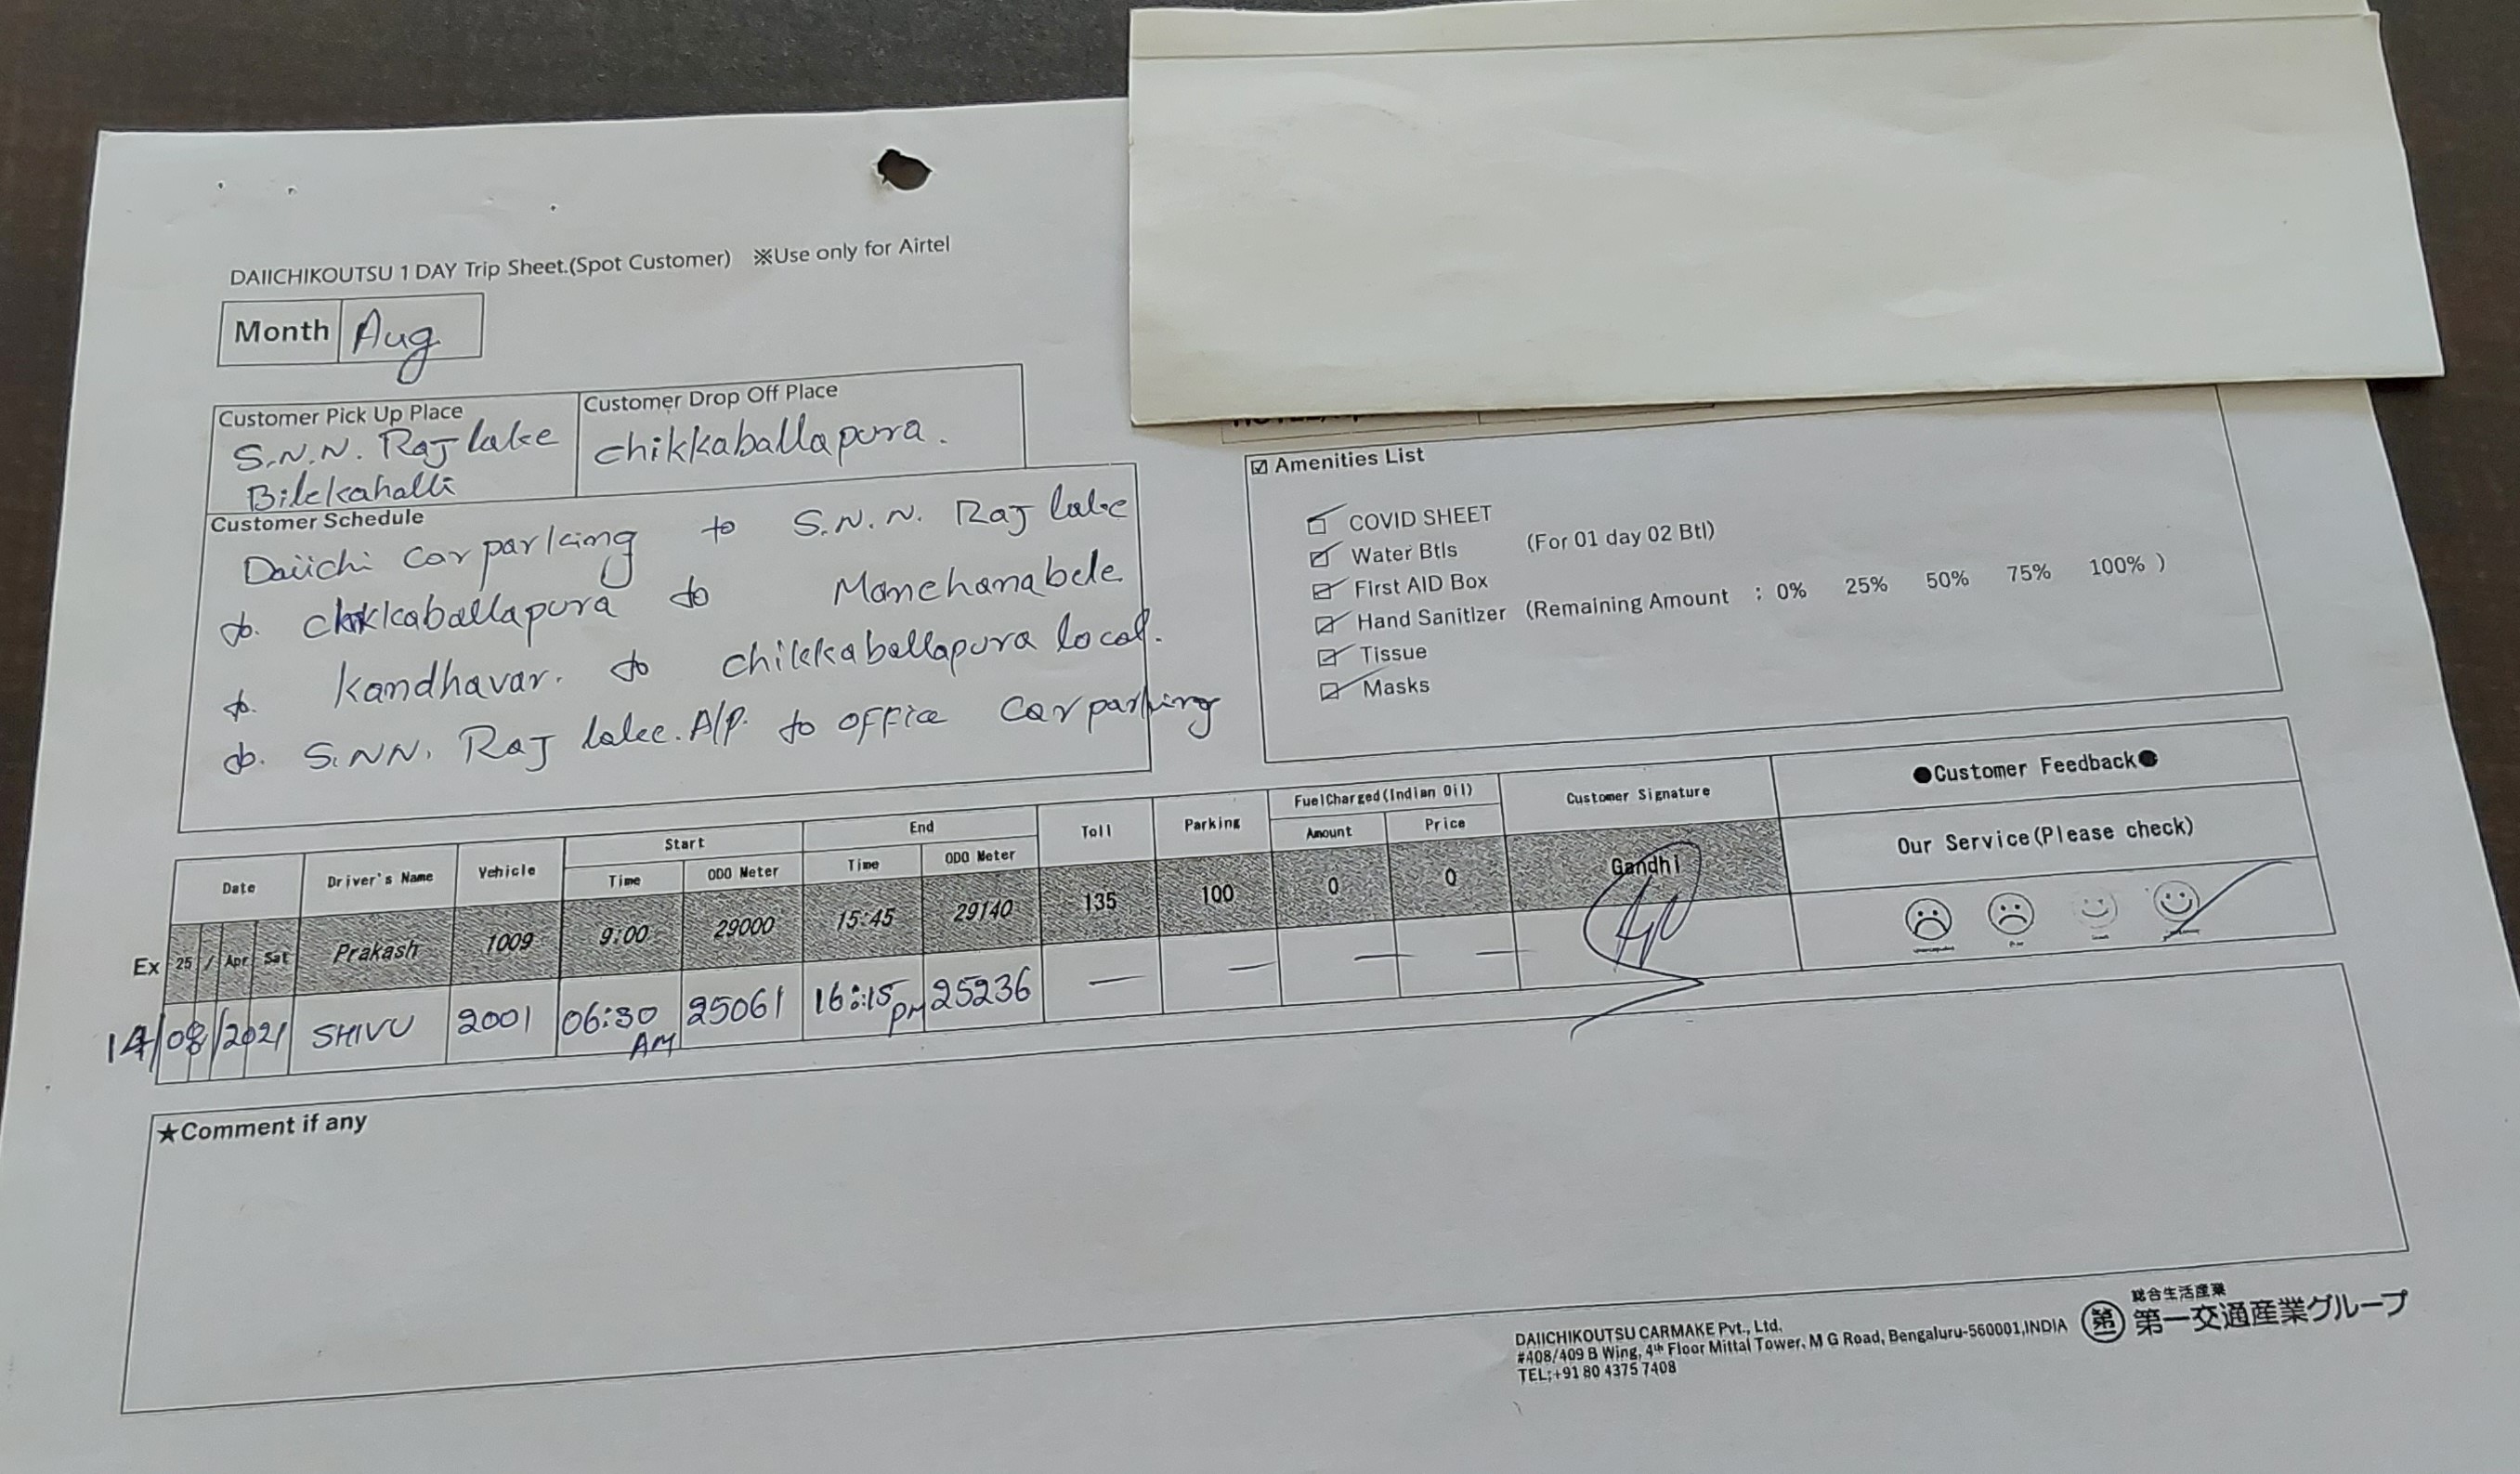 DAIICHIKOUTSU 1 DAY Trip Sheet.(Spot Customer) ※Use only for Airtel
Month Aug
Customer Pick Up Place
S.N.N. Raj lake
Bilekahalli
Customer Drop Off Place
chikkaballapura.
Customer Schedule
Daiichi Car parking to S.N.N. Raj lake
to. chikkaballapura to Manchanabele
to. kandhavar. to chikkaballapura local.
to. S.NN. Raj lake. A/P. to office Car parking
☑ Amenities List
COVID SHEET
Water Btls (For 01 day 02 Btl)
First AID Box
Hand Sanitizer (Remaining Amount : 0% 25% 50% 75% 100% )
Tissue
Masks
Date Driver's Name Vehicle Start End Toll Parking FuelCharged(Indian Oil) Customer Signature ●Customer Feedback●
Time ODO Meter Time ODO Meter Amount Price Our Service(Please check)
Ex 25 / Apr Sat Prakash 1009 9:00 29000 15:45 29140 135 100 0 0 Gandhi
14/08/2021 SHIVU 2001 06:30 AM 25061 16:15 PM 25236 — — — —
★Comment if any
DAIICHIKOUTSU CARMAKE Pvt., Ltd.
#408/409 B Wing, 4th Floor Mittal Tower, M G Road, Bengaluru-560001,INDIA
TEL;+91 80 4375 7408
総合生活産業
第一 第一交通産業グループ